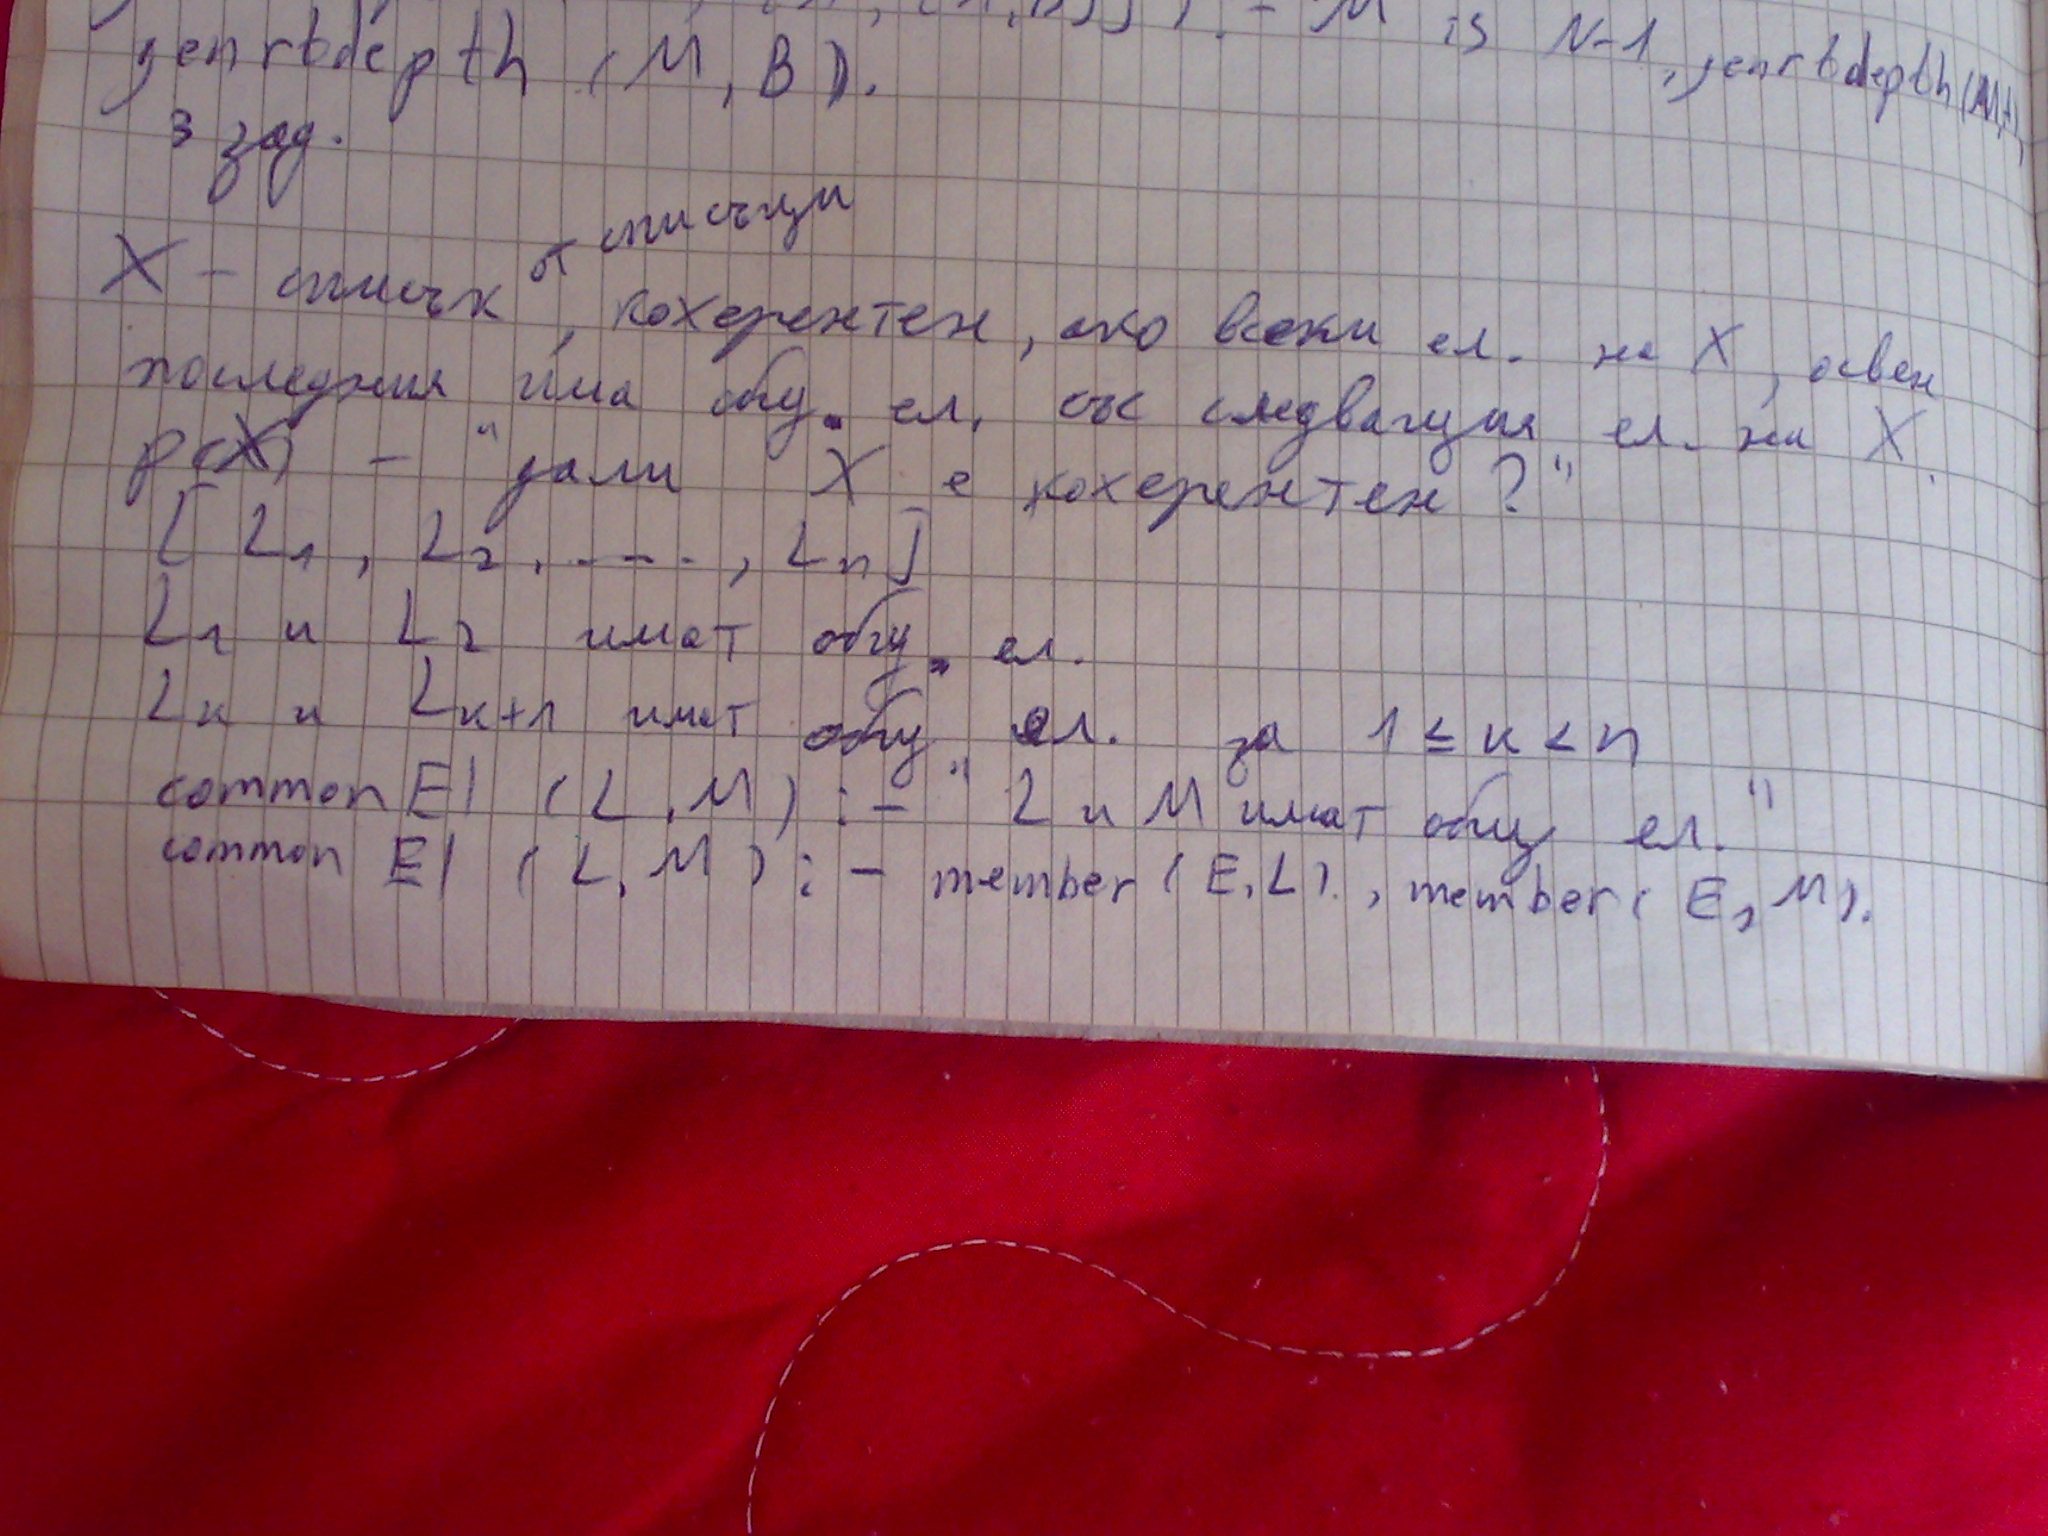 is N-1, genrtdepth(M,A),
genrtdepth (M, B).
3 зад.
X - списък от списъци, кохерентен, ако всеки ел. на X, освен
последния има общ. ел. със следващия ел. на X.
p(X) - "дали X е кохерентен?"
[L1, L2, ...., Ln]
L1 и L2 имат общ. ел.
Lk и Lk+1 имат общ ел. за 1 ≤ k < n
common El (L, M) :- "L и M имат общ ел."
common El (L, M) :- member (E, L), member (E, M).